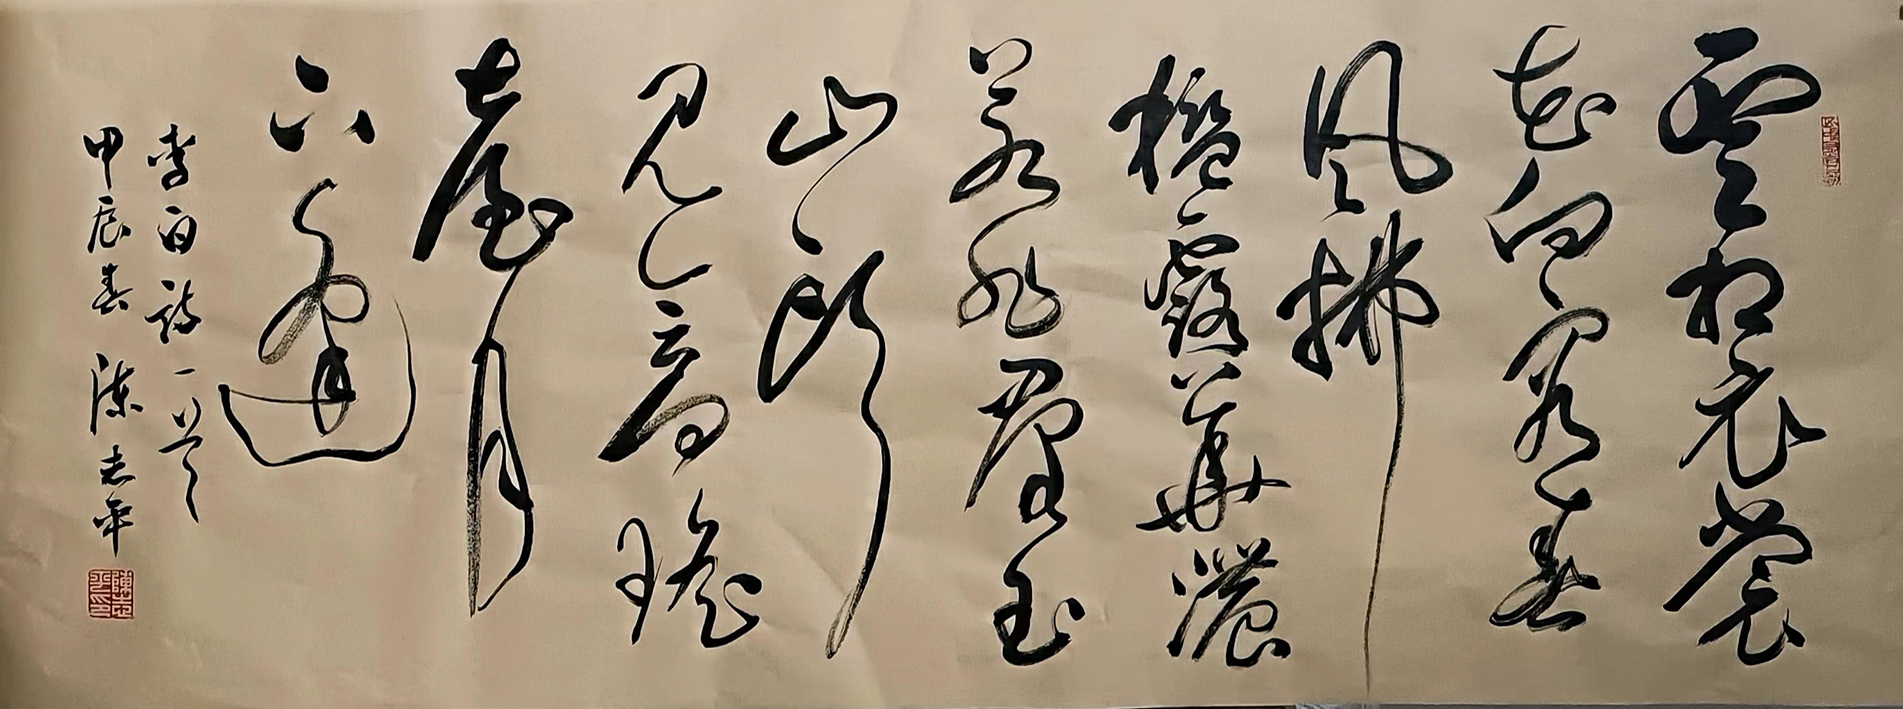 雲想衣裳
花想容春
風拂
檻露華濃
若非群玉
山頭
見會向瑤
臺月
下逢
李白詩一首
甲辰春 陳志平
陳志平印